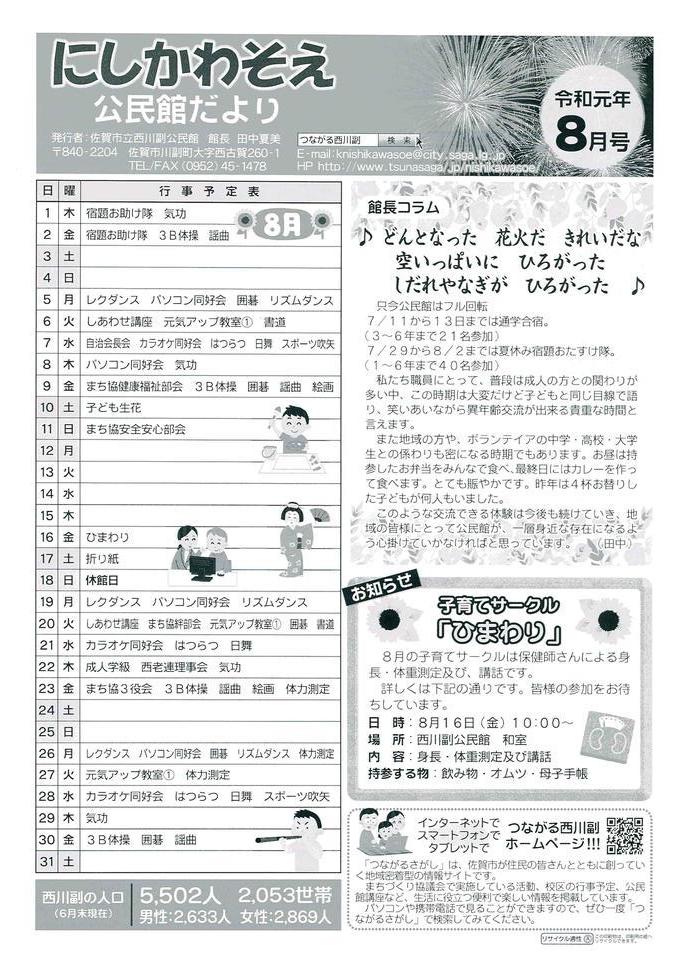 にしかわそえ
公民館だより
令和元年
8月号
発行者:佐賀市立西川副公民館 館長 田中夏美
〒840-2204 佐賀市川副町大字西古賀260-1
TEL/FAX(0952)45-1478
つながる西川副 検索
E-mail:knishikawasoe@city.saga.lg.jp
HP http://www.tsunasaga.jp/nishikawasoe/
日 曜 行事予定表
8月
1 木 宿題お助け隊 気功
2 金 宿題お助け隊 3B体操 謡曲
3 土
4 日
5 月 レクダンス パソコン同好会 囲碁 リズムダンス
6 火 しあわせ講座 元気アップ教室① 書道
7 水 自治会長会 カラオケ同好会 はつらつ 日舞 スポーツ吹矢
8 木 パソコン同好会 気功
9 金 まち協健康福祉部会 3B体操 囲碁 謡曲 絵画
10 土 子ども生花
11 日 まち協安全安心部会
12 月
13 火
14 水
15 木
16 金 ひまわり
17 土 折り紙
18 日 休館日
19 月 レクダンス パソコン同好会 リズムダンス
20 火 しあわせ講座 まち協絆部会 元気アップ教室① 囲碁 書道
21 水 カラオケ同好会 はつらつ 日舞
22 木 成人学級 西老連理事会 気功
23 金 まち協3役会 3B体操 謡曲 絵画 体力測定
24 土
25 日
26 月 レクダンス パソコン同好会 囲碁 リズムダンス 体力測定
27 火 元気アップ教室① 体力測定
28 水 カラオケ同好会 はつらつ 日舞 スポーツ吹矢
29 木 気功
30 金 3B体操 囲碁 謡曲
31 土
西川副の人口
(6月末現在)
5,502人 2,053世帯
男性:2,633人 女性:2,869人
館長コラム
♪ どんとなった 花火だ きれいだな
空いっぱいに ひろがった
しだれやなぎが ひろがった ♪
只今公民館はフル回転
7/11から13日までは通学合宿。
(3~6年まで21名参加)
7/29から8/2までは夏休み宿題おたすけ隊。
(1~6年まで40名参加)
私たち職員にとって、普段は成人の方との関わりが
多い中、この時期は大変だけど子どもと同じ目線で語
り、笑いあいながら異年齢交流が出来る貴重な時間と
言えます。
また地域の方や、ボランティアの中学・高校・大学
生との係わりも密になる時期でもあります。お昼は持
参したお弁当をみんなで食べ、最終日にはカレーを作っ
て食べます。とても賑やかです。昨年は4杯お替りし
た子どもが何人もいました。
このような交流できる体験は今後も続けていき、地
域の皆様にとって公民館が、一層身近な存在になるよ
う心掛けていかなければと思っています。 (田中)
お知らせ
子育てサークル
「ひまわり」
8月の子育てサークルは保健師さんによる身
長・体重測定及び、講話です。
詳しくは下記の通りです。皆様の参加をお待
ちしています。
日 時:8月16日(金)10:00~
場 所:西川副公民館 和室
内 容:身長・体重測定及び講話
持参する物:飲み物・オムツ・母子手帳
インターネットで
スマートフォンで
タブレットで
つながる西川副
ホームページ!!!
「つながるさがし」は、佐賀市が住民の皆さんとともに創ってい
く地域密着型の情報サイトです。
まちづくり協議会で実施している活動、校区の行事予定、公民
館講座など、生活に役立つ便利で楽しい情報を掲載しています。
パソコンや携帯電話で見ることができますので、ぜひ一度「つ
ながるさがし」で検索してみてください。
リサイクル適性 A
この印刷物は、印刷用の紙へ
リサイクルできます。